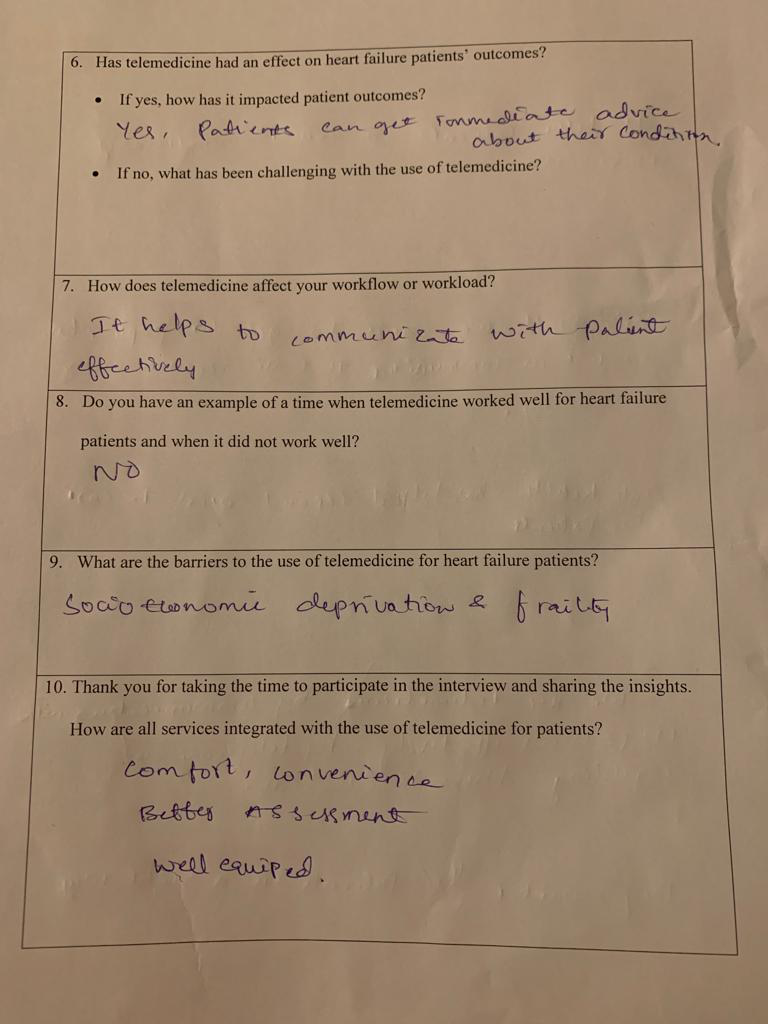 6. Has telemedicine had an effect on heart failure patients' outcomes?
• If yes, how has it impacted patient outcomes?
Yes, Patients can get immediate advice
about their condition.
• If no, what has been challenging with the use of telemedicine?
7. How does telemedicine affect your workflow or workload?
It helps to communicate with patient
effectively
8. Do you have an example of a time when telemedicine worked well for heart failure
patients and when it did not work well?
NO
9. What are the barriers to the use of telemedicine for heart failure patients?
Socio economic deprivation & frailty
10. Thank you for taking the time to participate in the interview and sharing the insights.
How are all services integrated with the use of telemedicine for patients?
Comfort, convenience
Better Assessment
Well equiped.